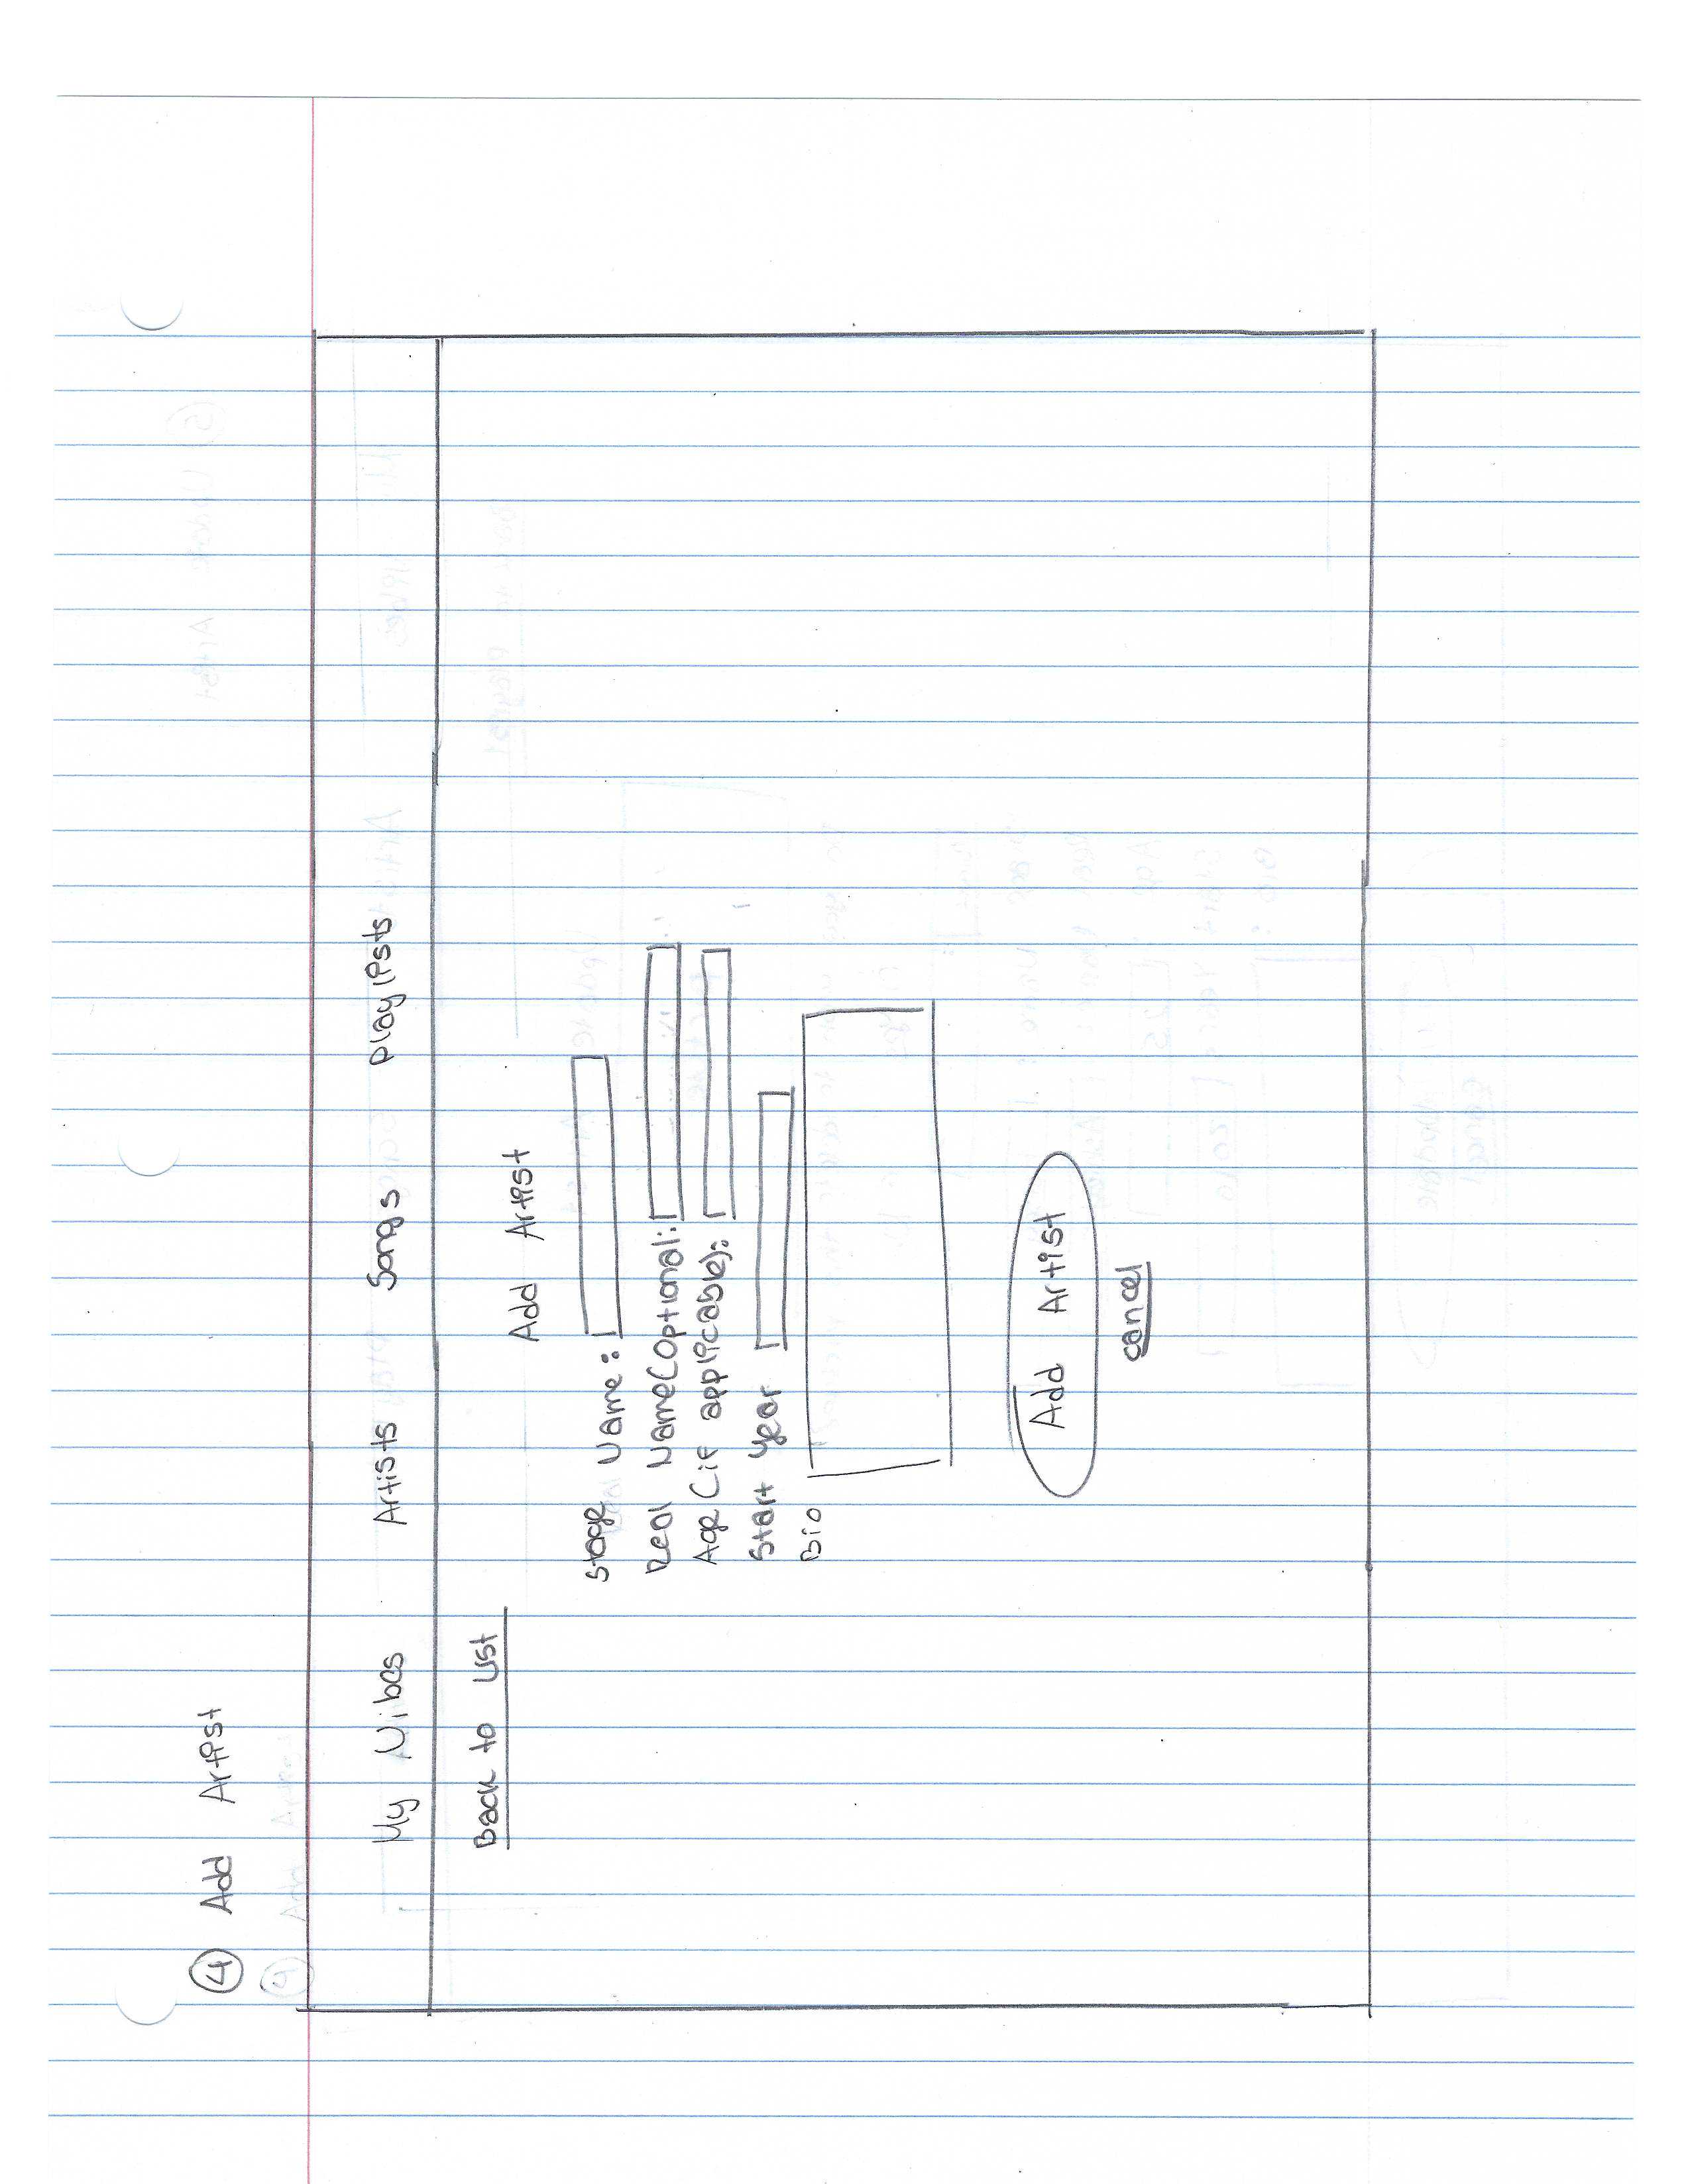 4 Add Artist
My Vibes Artists Songs Playlists
Back to List
Add Artist
Stage Name:
Real Name(Optional:
Age (if applicable):
Start Year
Bio
Add Artist
cancel